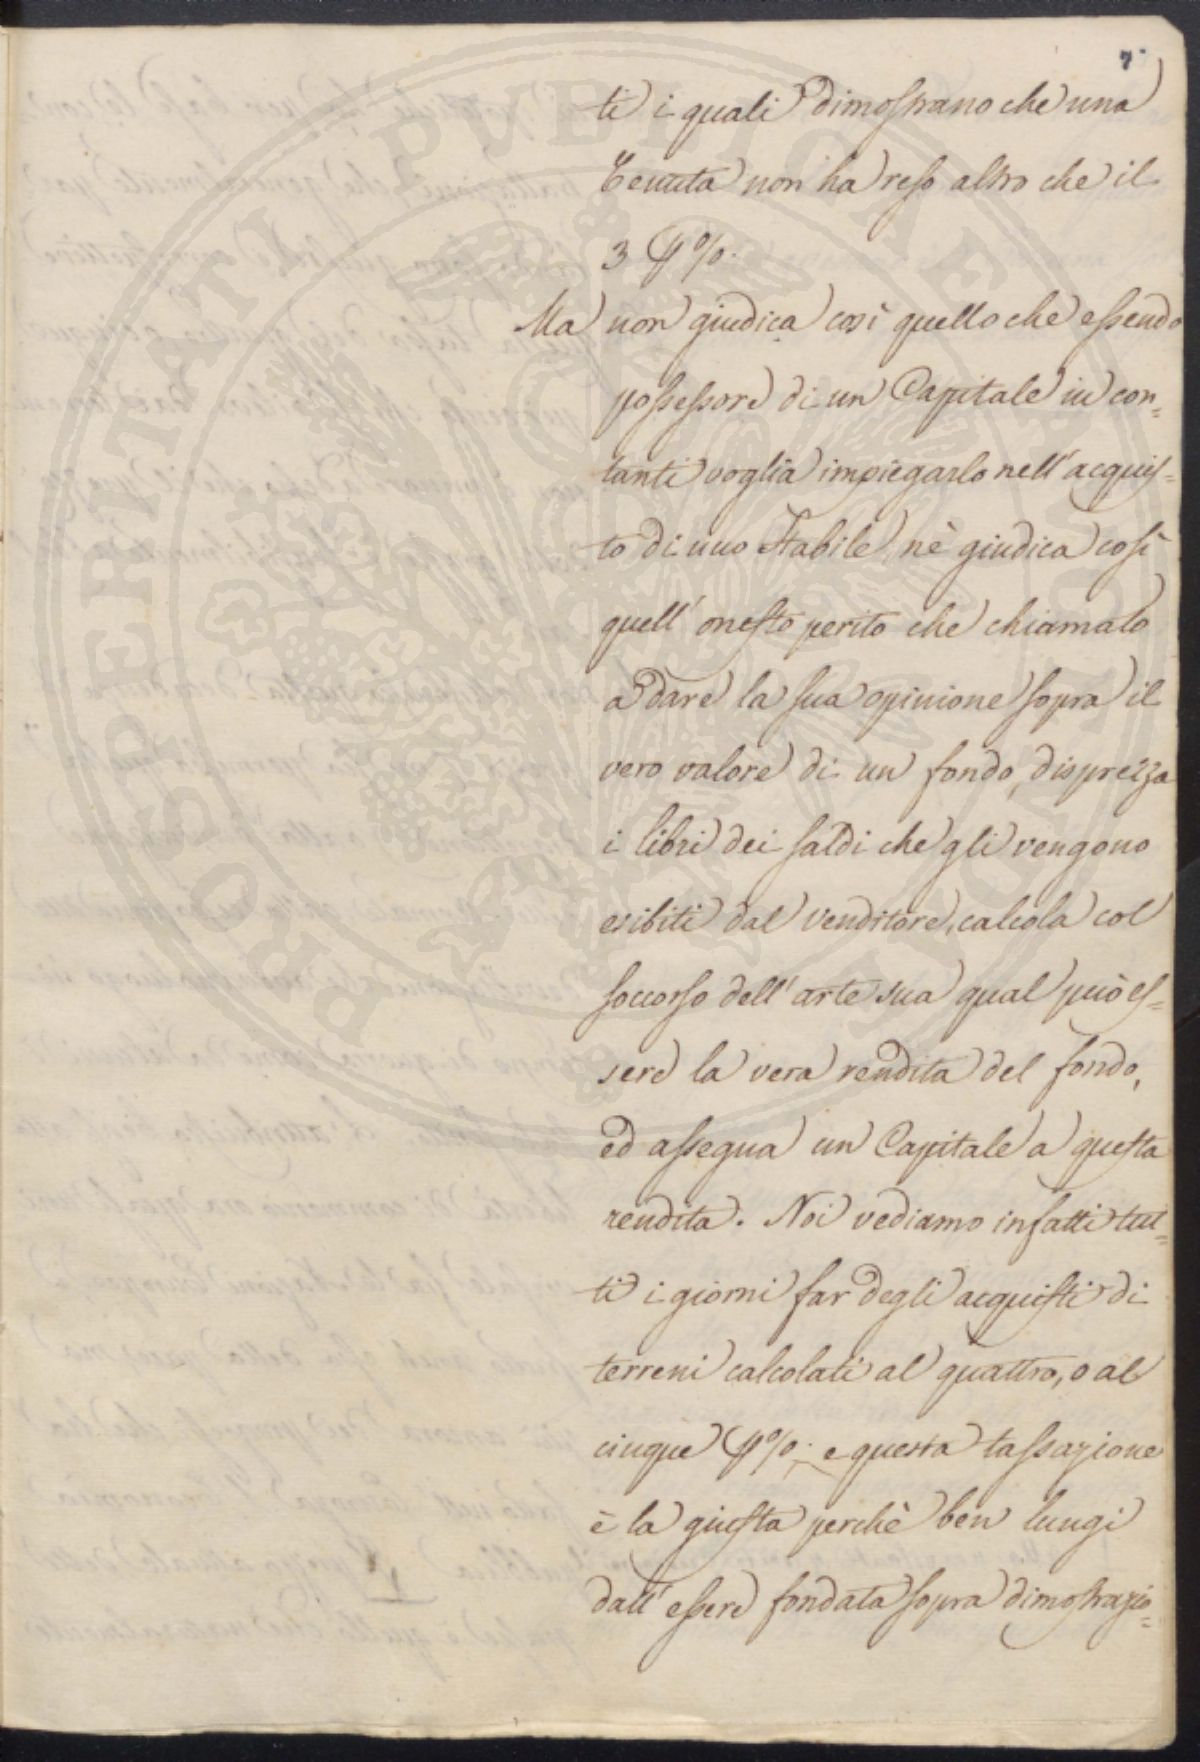 7
ti i quali dimostrano che una
Tenuta non ha reso altro che il
3 p%.
Ma non giudica così quello che essendo
possessore di un Capitale in con=
tanti voglia impiegarlo nell'acquis=
to di uno Stabile, nè giudica così
quell'onesto perito che chiamato
a dare la sua opinione sopra il
vero valore di un fondo, disprezza
i libri dei saldi che gli vengono
esibiti dal venditore, calcola col
soccorso dell'arte sua qual può es=
sere la vera rendita del fondo,
ed assegna un Capitale a questa
rendita. Noi vediamo infatti tut=
ti i giorni far degli acquisti di
terreni calcolati al quattro, o al
cinque p%. e questa tassazione
è la giusta perchè ben lungi
dall'essere fondata sopra dimostrazio=
PROSPERITATI PVBLICAE AVGENDAE